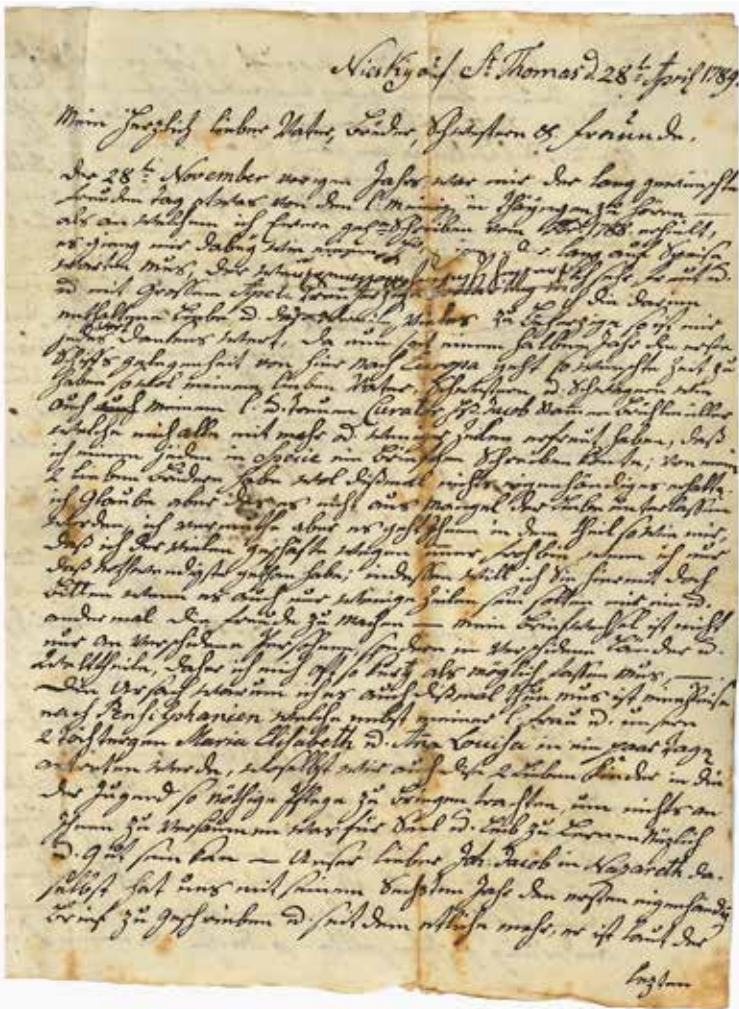 Niesky auf St Thomas d. 28t April 1789.
Mein herzlich lieber Vater, Brüder, Schwestern & Fraünde.
Der 28te November vorigen Jahrs war mir der lang gewünschte
Freuden Tag etwas von den l. Meinigen in zu hören —
als an welchem ich Euere Schreiben vom 1788 erhielt,
es gieng mir dabeÿ wie einem der lang auf Speise
warten mus, der
u. mit Grossem die darinn
enthaltene Liebe u. zu so ist mir
jedes Dankens wert, da nun seit einem halben Jahr die erste
Schiffs gelegenheit von hier nach Europa geht so wünschte Zeit zu
haben sowol meinem lieben Vater, Schwestern u. Schwägern wie
auch meinem l. u. treuen Curator Jacob
welche mich alle mit mehr od. weniger Zeilen erfreut haben, daß
ich einem jeden in Specie ein Schreiben könte; von mein
2 lieben Brüdern habe wol dißmal nichts eigenhändiges erhalten
ich Glaube aber das es nicht aus mangel der Liebe unterlassen
worden, ich vermuthe aber es geht Ihnen in dem theil so wie mir,
daß ich der vielen geschäfte wegen immer froh bin wenn ich nur
daß nothwendigste gethan habe; indessen will ich Sie hiermit doch
bitten wenn es auch nur wenige Zeilen sein solten mir ein u.
andermal die Freude zu machen — mein Briefwechsel ist nicht
nur an verschidene Persohnen, sondern in verschidene Länder u.
Weltteile, daher ich mich oft so kurtz als möglich fassen mus, —
Die Ursach warum ich es auch dißmal thun mus ist eine Reise
nach Pensilphanien welche nebst meiner l. Frau u. unsern
2 Töchtergen Maria Elisabeth u. Ana Louisa in ein paar Tage
antreten werde, woselbst wir auch dise 2 lieben Kinder in die
der Jugend so nöthige Pflege zu bringen trachten, um nichts an
Ihnen zu versäumen was für Seel u. Leib zu Lernen Nüzlich
u. Gut sein kan — Unser lieber Joh. Jacob in Nazareth da-
selbst hat uns mit seinem Sechsten Jahr den ersten eigenhändig
Brief zu geschrieben u. seit dem etliche mehr, er ist laut der
lezten